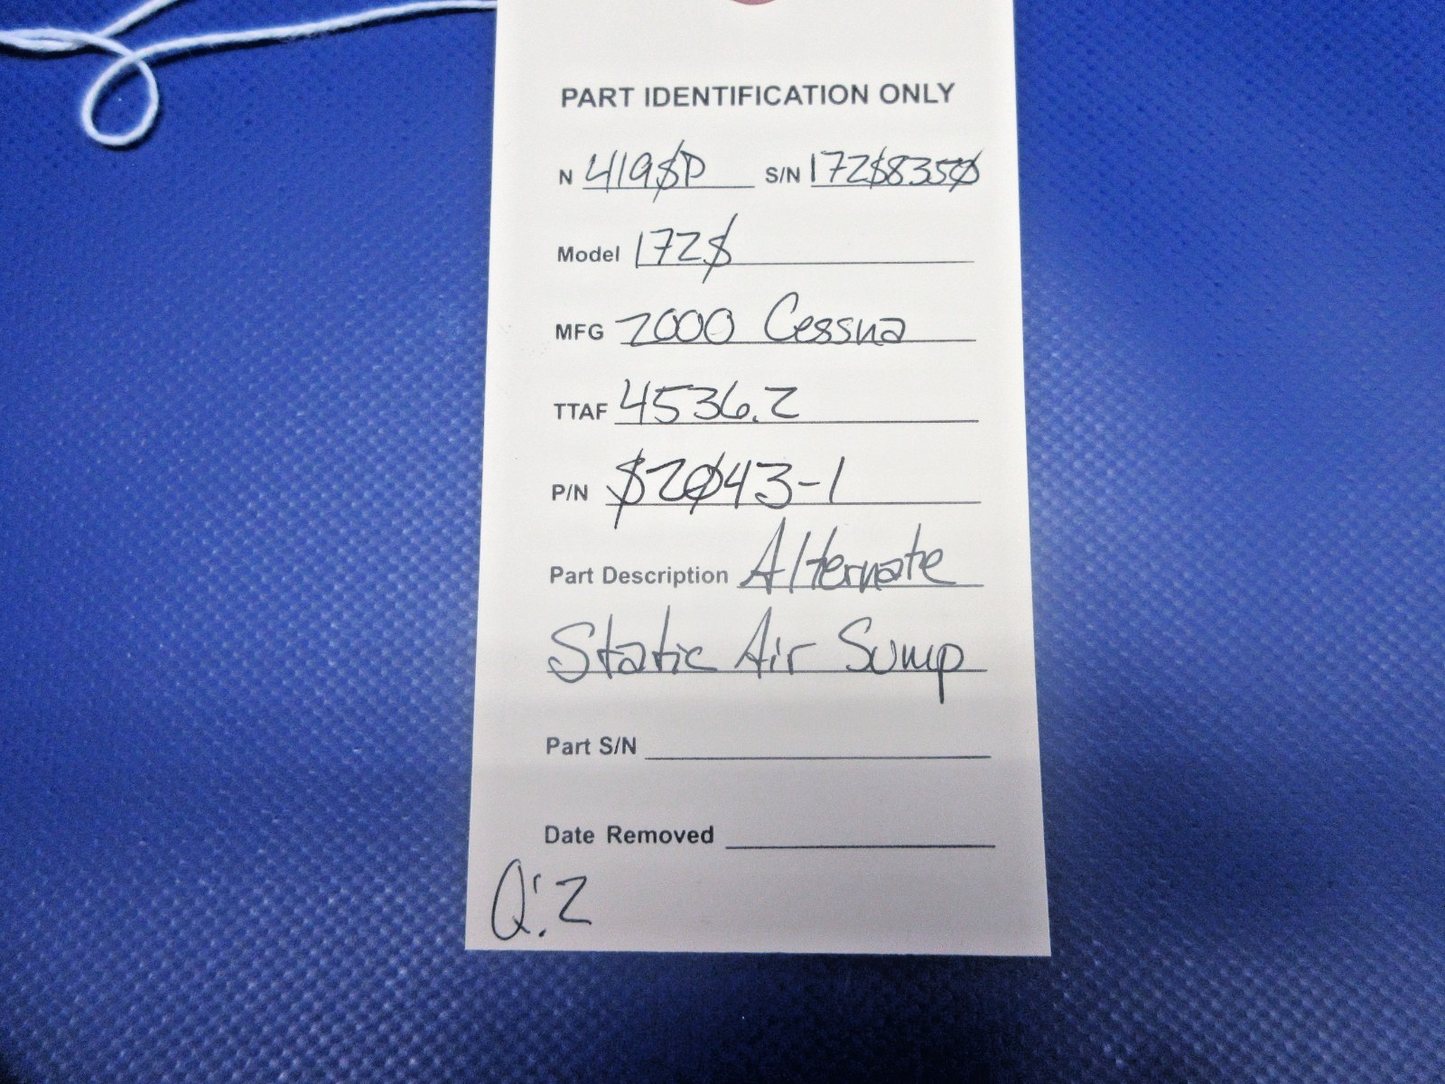 PART IDENTIFICATION ONLY
N 419SP S/N 172S8350
Model 172S
MFG 2000 Cessna
TTAF 4536.2
P/N S2043-1
Part Description Alternate
Static Air Sump
Part S/N
Date Removed
Q: 2